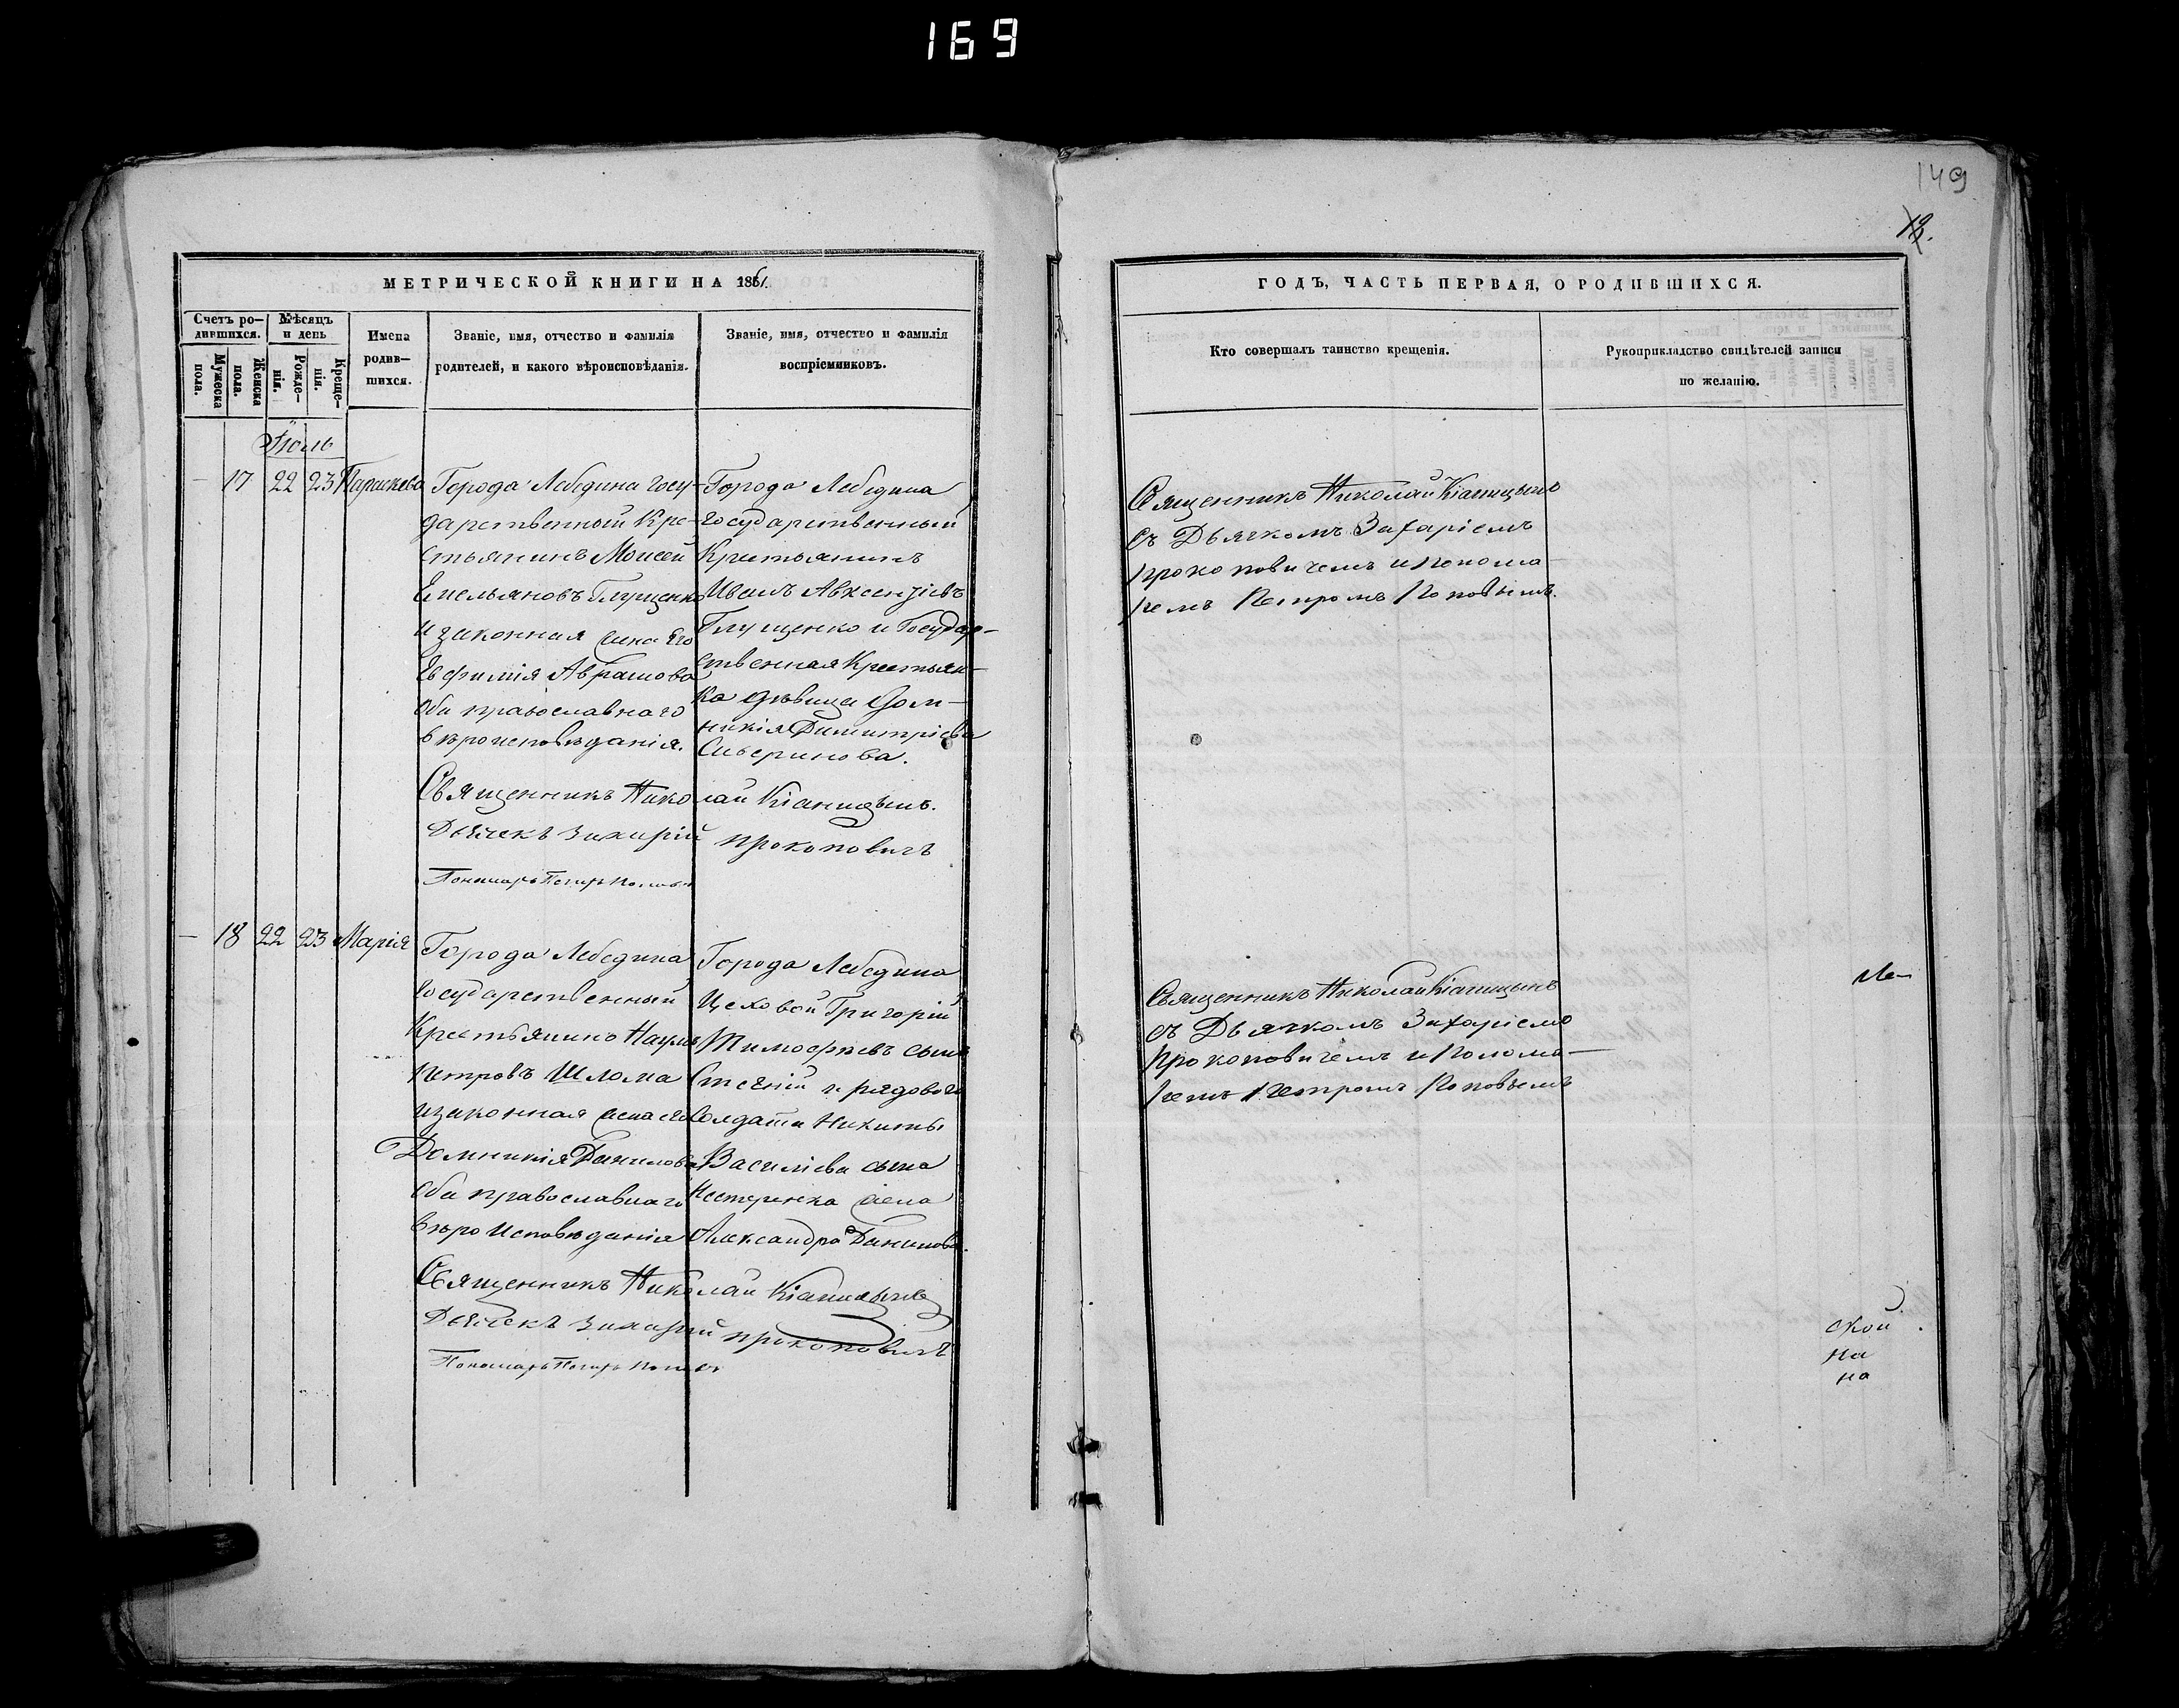 169
149
13.
МЕТРИЧЕСКОЙ КНИГИ НА 1861.
Счетъ ро-
дившихся.
Мужеска
пола.
Женска
пола.
Мѣсяцъ
и день
Рожде-
нія.
Креще-
нія.
Имена
родив-
шихся.
Званіе, имя, отчество и фамилія
родителей, и какого вѣроисповѣданія.
Званіе, имя, отчество и фамилія
воспріемниковъ.
Іюль
— 17 22 23 Параскева
Города Лебедина госу-
дарственный Кре-
стьянинъ Моисей
Емельяновъ Глущенко
и законная жена его
Евфимія Аврамова
оба православнаго
вѣроисповѣданія.
Города Лебедина
государственный
Крестьянинъ
Иванъ Авксентіевъ
Глущенко и Государ-
ственная Крестьян-
ка дѣвица Дом-
никія Димитріева
Сиверинова.
Священникъ Николай
Дьячекъ Захарій Прокоповичъ
Пономарь Петръ Поповъ
— 18 22 23 Марія
Города Лебедина
государственный
Крестьянинъ Наумъ
Петровъ Шлома
и законная жена его
Домникія Данилова
оба православнаго
вѣроисповѣданія
Города Лебедина
Цеховой Григорій
Тимофѣевъ сынъ
и рядоваго
Солдата Никиты
Василіева сына
Нестеренка жена
Александра Данилова.
Священникъ Николай
Дьячекъ Захарій Прокоповичъ
Пономарь Петръ Поповъ
ГОДЪ, ЧАСТЬ ПЕРВАЯ, О РОДИВШИХСЯ.
Кто совершалъ таинство крещенія.
Рукоприкладство свидѣтелей записи
по желанію.
Священникъ Николай
съ Дьячкомъ Захаріемъ
Прокоповичемъ и Понома-
ремъ Петромъ Поповымъ.
Священникъ Николай
съ Дьячкомъ Захаріемъ
Прокоповичемъ и Понома-
ремъ Петромъ Поповымъ
ской
на
на